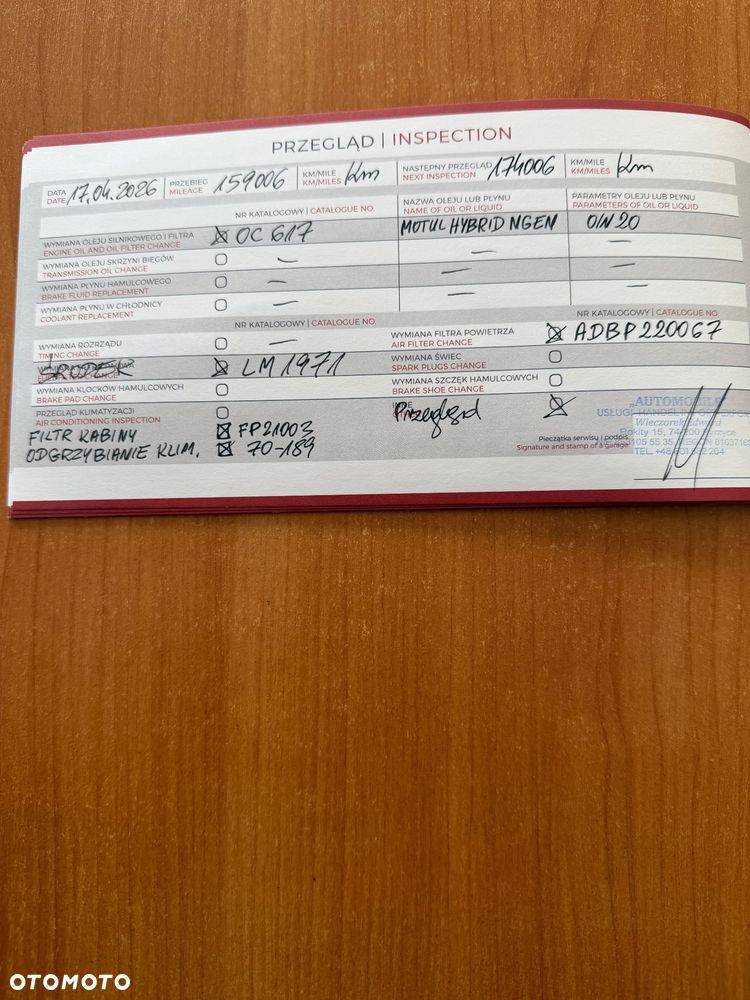 PRZEGLĄD | INSPECTION
DATA DATE 17.04.2026 PRZEBIEG MILEAGE 159006 KM/MILE KM/MILES Km NASTĘPNY PRZEGLĄD NEXT INSPECTION 174006 KM/MILE KM/MILES Km
NR KATALOGOWY | CATALOGUE NO. NAZWA OLEJU LUB PŁYNU NAME OF OIL OR LIQUID PARAMETRY OLEJU LUB PŁYNU PARAMETERS OF OIL OR LIQUID
WYMIANA OLEJU SILNIKOWEGO I FILTRA
ENGINE OIL AND OIL FILTER CHANGE OC 617 MOTUL HYBRID NGEN 0W20
WYMIANA OLEJU SKRZYNI BIEGÓW
TRANSMISSION OIL CHANGE — — —
WYMIANA PŁYNU HAMULCOWEGO
BRAKE FLUID REPLACEMENT — — —
WYMIANA PŁYNU W CHŁODNICY
COOLANT REPLACEMENT — — —
NR KATALOGOWY | CATALOGUE NO. NR KATALOGOWY | CATALOGUE NO.
WYMIANA ROZRZĄDU
TIMING CHANGE —
WYMIANA FILTRA POWIETRZA
AIR FILTER CHANGE ADBP220067
LM 1971
WYMIANA ŚWIEC
SPARK PLUGS CHANGE
WYMIANA KLOCKÓW HAMULCOWYCH
BRAKE PAD CHANGE
WYMIANA SZCZĘK HAMULCOWYCH
BRAKE SHOE CHANGE
PRZEGLĄD KLIMATYZACJI
AIR CONDITIONING INSPECTION
Przegląd
FILTR KABINY FP21003
ODGRZYBIANIE KLIM. 70-189
Pieczątka serwisu i podpis
Signature and stamp of a garage
„AUTOMOBILE"
Wieczorek Edward
Rokity 15, 74
OTOMOTO